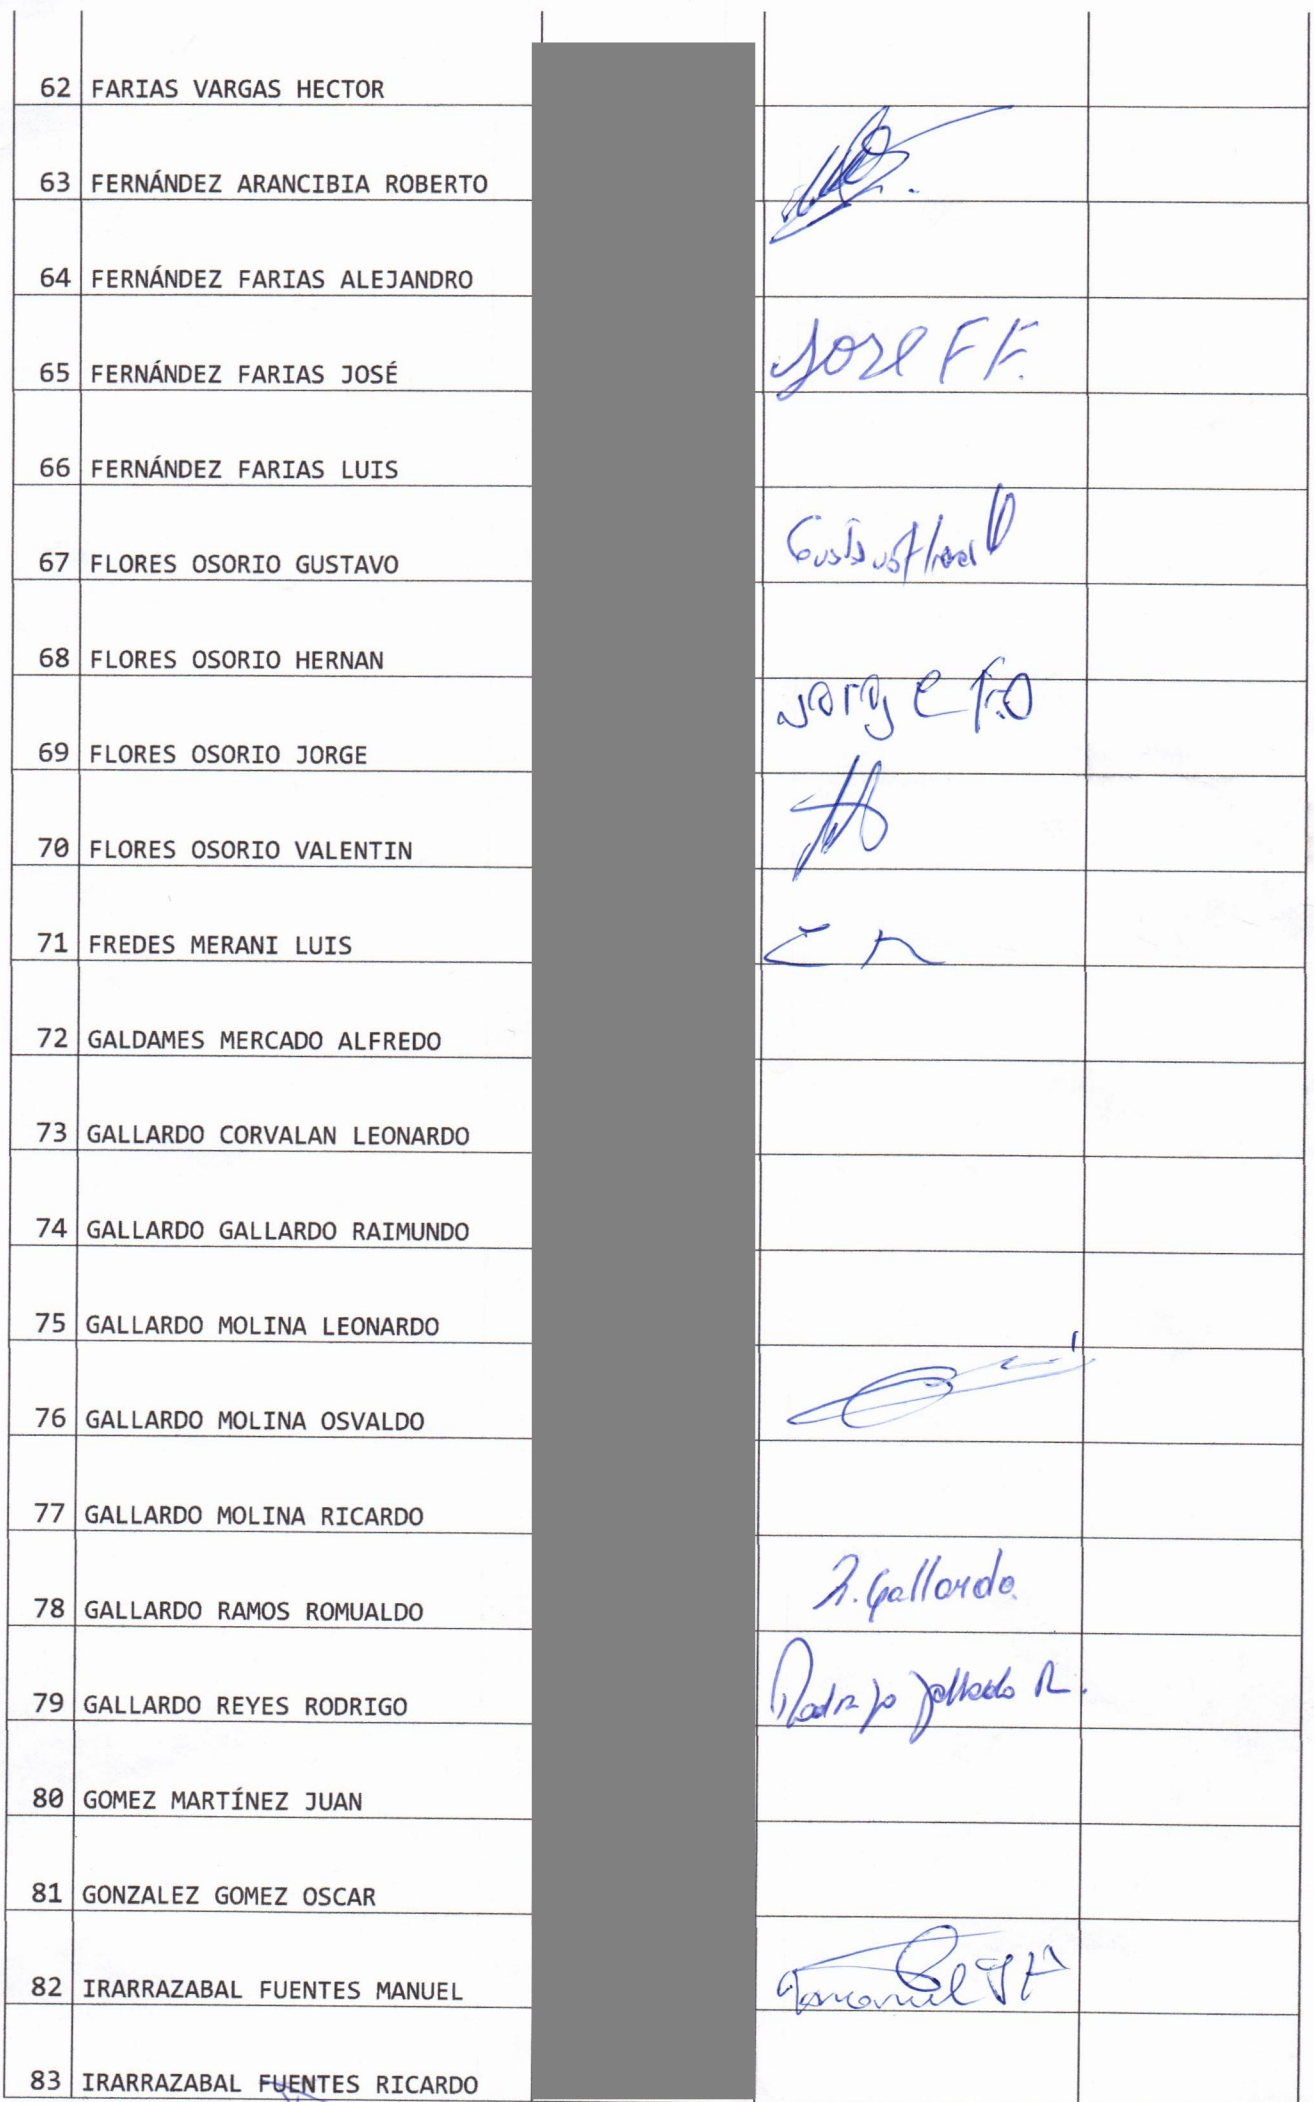 62 FARIAS VARGAS HECTOR
63 FERNÁNDEZ ARANCIBIA ROBERTO
64 FERNÁNDEZ FARIAS ALEJANDRO
65 FERNÁNDEZ FARIAS JOSÉ Jose F F.
66 FERNÁNDEZ FARIAS LUIS
67 FLORES OSORIO GUSTAVO Gustavo
68 FLORES OSORIO HERNAN
69 FLORES OSORIO JORGE Jorge F.O
70 FLORES OSORIO VALENTIN
71 FREDES MERANI LUIS
72 GALDAMES MERCADO ALFREDO
73 GALLARDO CORVALAN LEONARDO
74 GALLARDO GALLARDO RAIMUNDO
75 GALLARDO MOLINA LEONARDO
76 GALLARDO MOLINA OSVALDO
77 GALLARDO MOLINA RICARDO
78 GALLARDO RAMOS ROMUALDO R. Gallardo.
79 GALLARDO REYES RODRIGO Rodrigo Gallardo R.
80 GOMEZ MARTÍNEZ JUAN
81 GONZALEZ GOMEZ OSCAR
82 IRARRAZABAL FUENTES MANUEL Manuel I F
83 IRARRAZABAL FUENTES RICARDO